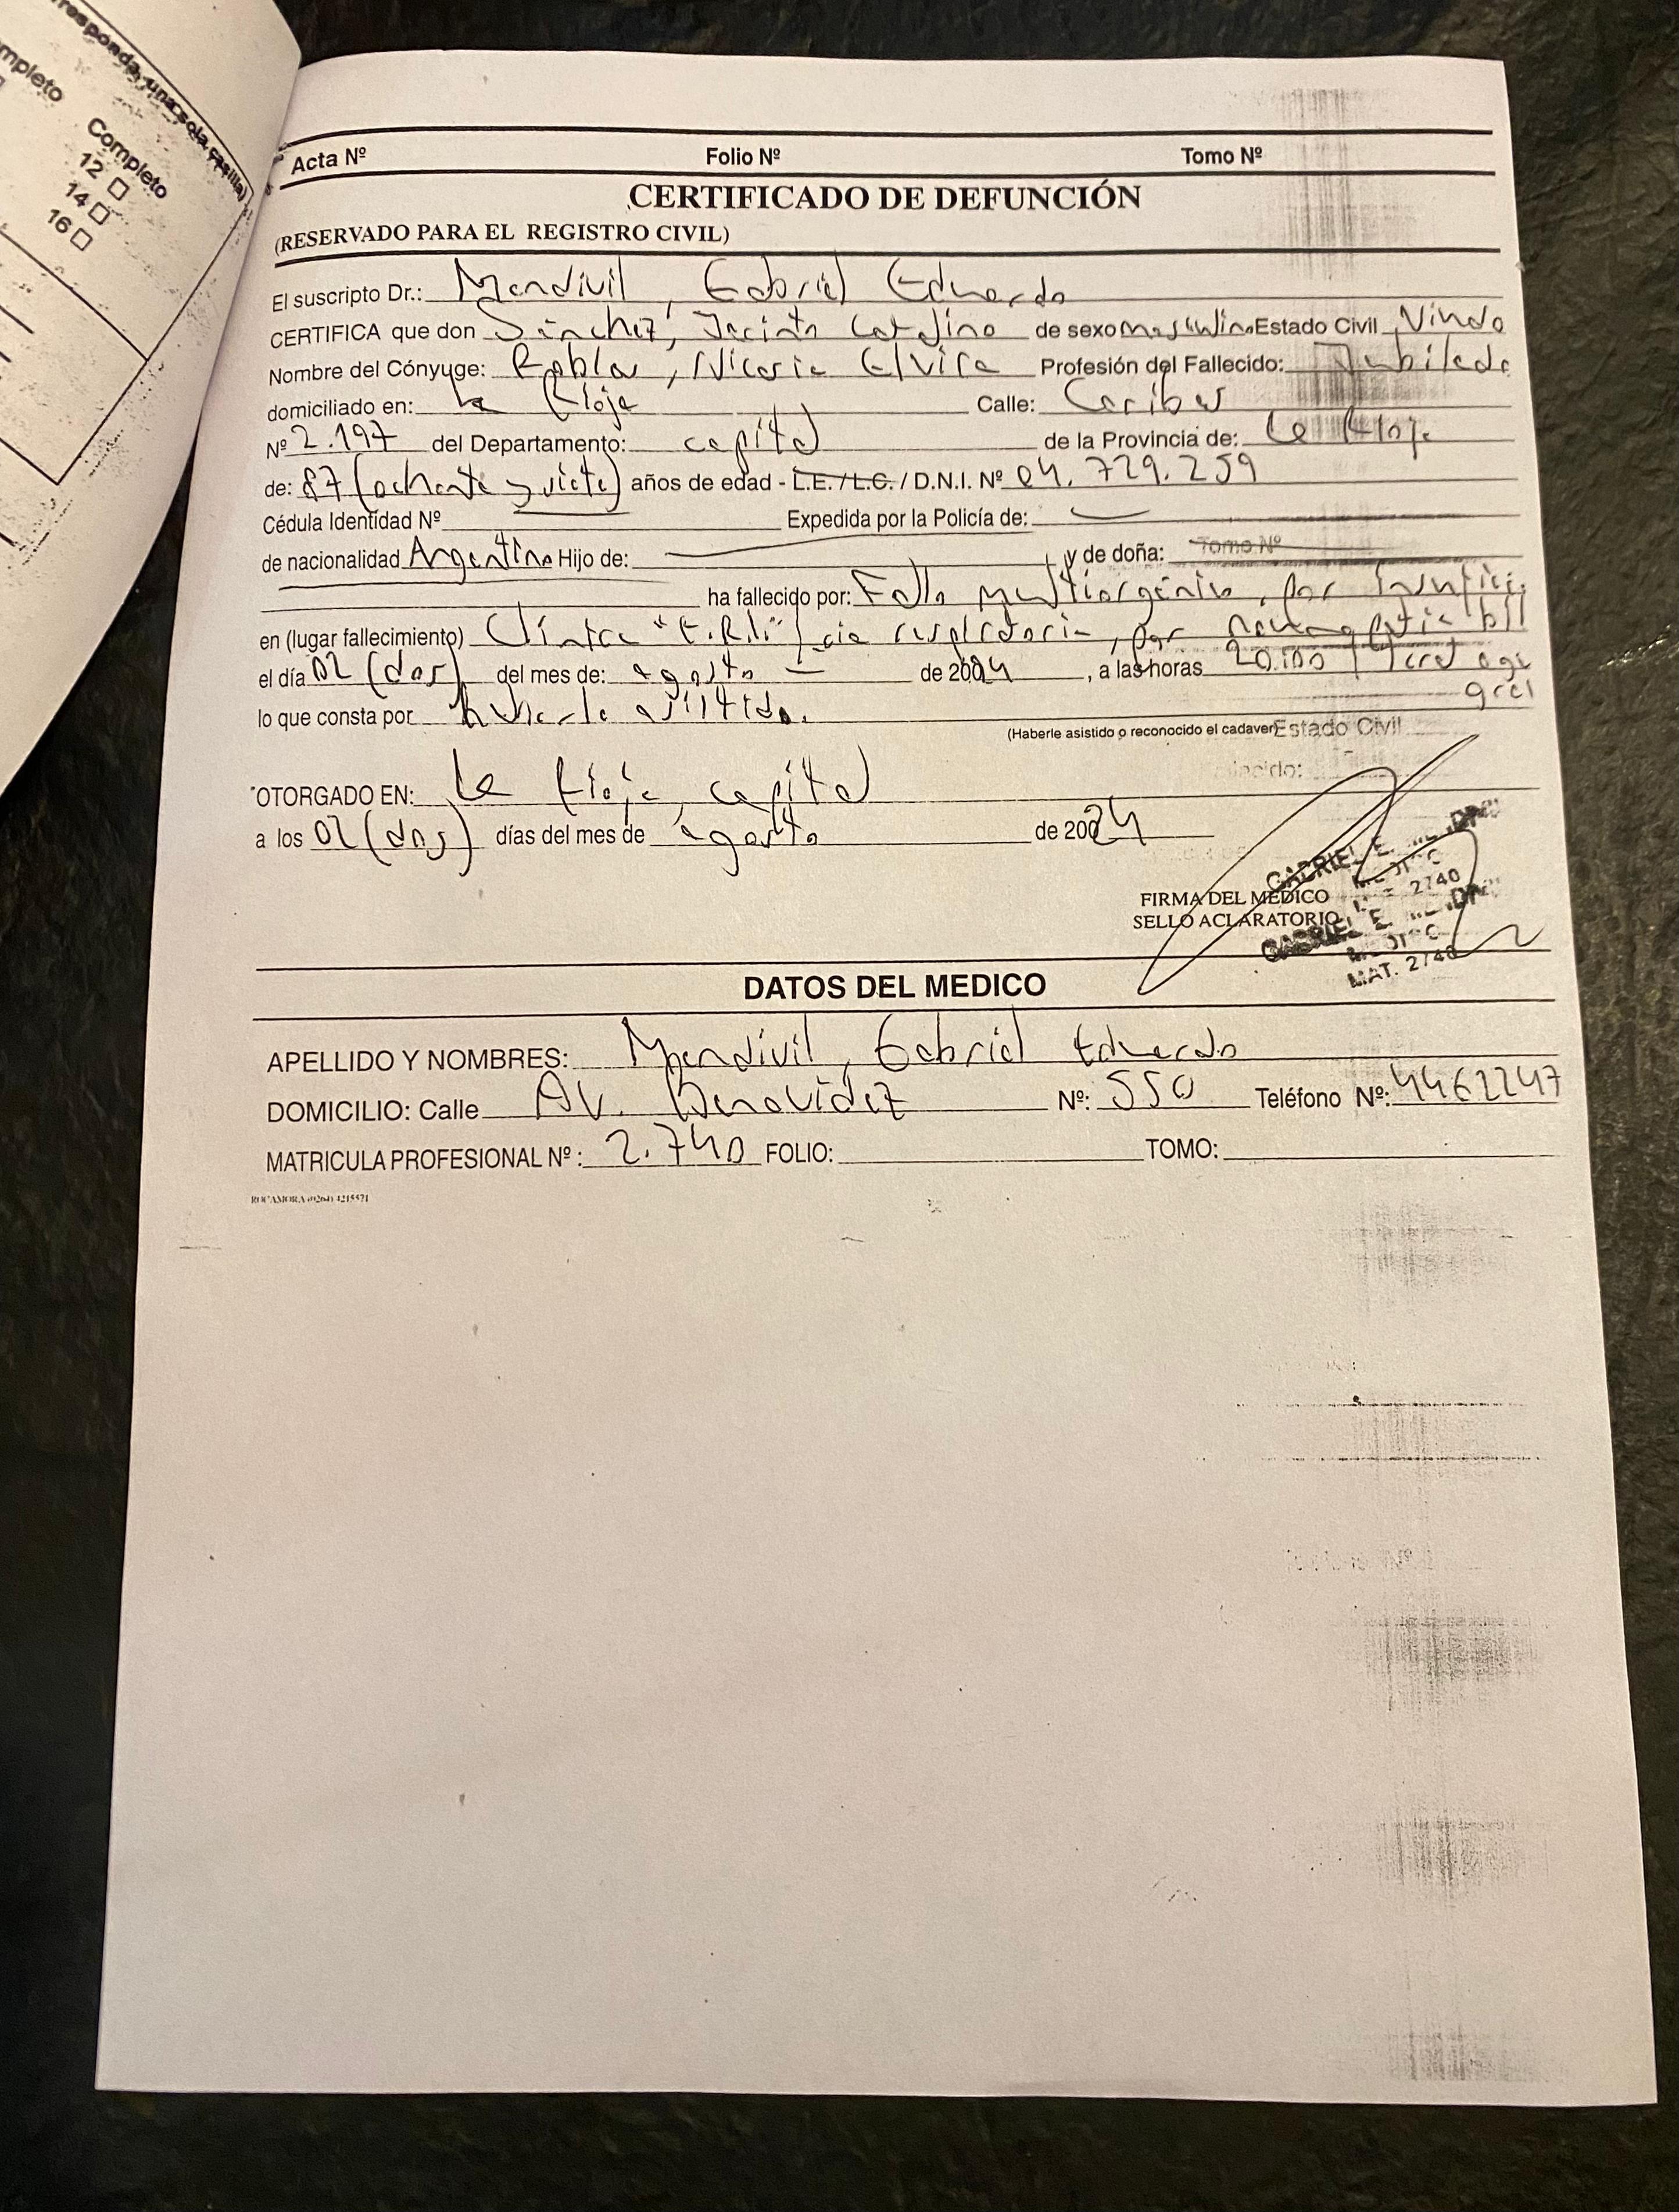 responda, una sola casilla)
mpleto
Completo
12
14
16
Acta Nº Folio Nº Tomo Nº
CERTIFICADO DE DEFUNCIÓN
(RESERVADO PARA EL REGISTRO CIVIL)
El suscripto Dr.: Mendivil, Gabriel Eduardo
CERTIFICA que don Sánchez, Jacinto Catalino de sexo masculino Estado Civil Viudo
Nombre del Cónyuge: Elvira Profesión del Fallecido: Jubilado
domiciliado en: La Rioja Calle: Caribes
Nº 2.197 del Departamento: capital de la Provincia de: La Rioja
de: 87 (ochenta y siete) años de edad - L.E. / L.C. / D.N.I. Nº 04.729.259
Cédula Identidad Nº Expedida por la Policía de:
de nacionalidad Argentino Hijo de: y de doña: Tomo Nº
ha fallecido por: Fallo multiorgánico, por Insufici
en (lugar fallecimiento) Clínica "E.R.I." cia respiratoria, por
el día 02 (dos) del mes de: agosto de 2024, a las horas 20:00
lo que consta por haberlo asistido.
(Haberle asistido o reconocido el cadaver) Estado Civil
OTORGADO EN: La Rioja, capital
a los 02 (dos) días del mes de agosto de 20024
FIRMA DEL MEDICO
SELLO ACLARATORIO
GABRIEL E.
MAT. 2740
DATOS DEL MEDICO
APELLIDO Y NOMBRES: Mendivil, Gabriel Eduardo
DOMICILIO: Calle Av. Benavidez Nº: 550 Teléfono Nº: 4462247
MATRICULA PROFESIONAL Nº : 2.740 FOLIO: TOMO:
ROCAMORA (0264) 4215571